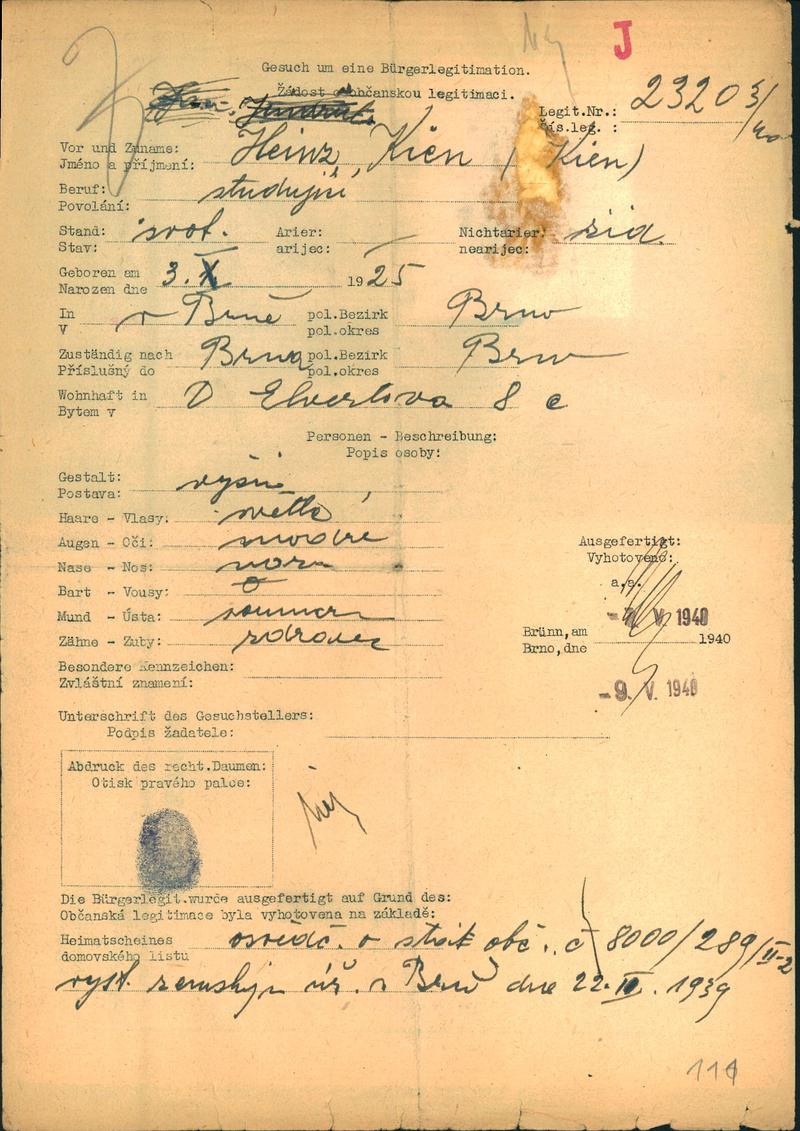 J
Gesuch um eine Bürgerlegitimation.
Žádost o občanskou legitimaci.
Legit.Nr.: 23203/40
čís.leg. :
Vor und Zuname: Heinz Kien (Kien)
Jméno a příjmení:
Beruf: studující
Povolání:
Stand: svob. Arier: — Nichtarier: žid.
Stav: arijec: nearijec:
Geboren am 3. X 1925
Narozen dne
In v Brně pol.Bezirk Brno
V pol.okres
Zuständig nach Brna pol.Bezirk Brno
Příslušný do pol.okres
Wohnhaft in D Elvertova 8 c
Bytem v
Personen - Beschreibung:
Popis osoby:
Gestalt: vyšší
Postava:
Haare - Vlasy: světlé
Augen - Oči: modré
Nase - Nos:
Bart - Vousy: 0
Mund - Ústa:
Zähne - Zuby: zdravé
Besondere Kennzeichen:
Zvláštní znamení:
Ausgefertigt:
Vyhotoveno:
a.a.
-7. V. 1940
Brünn,am 1940
Brno,dne
-9. V. 1940
Unterschrift des Gesuchstellers:
Podpis žadatele:
Abdruck des recht.Daumen:
Otisk pravého palce:
Die Bürgerlegit.wurde ausgefertigt auf Grund des:
Občanská legitimace byla vyhotovena na základě:
Heimatscheines osvědč. o stát. obč. č 8000/289/II-2
domovského listu
vyst. zemským úř. v Brně dne 22. II. 1939
111